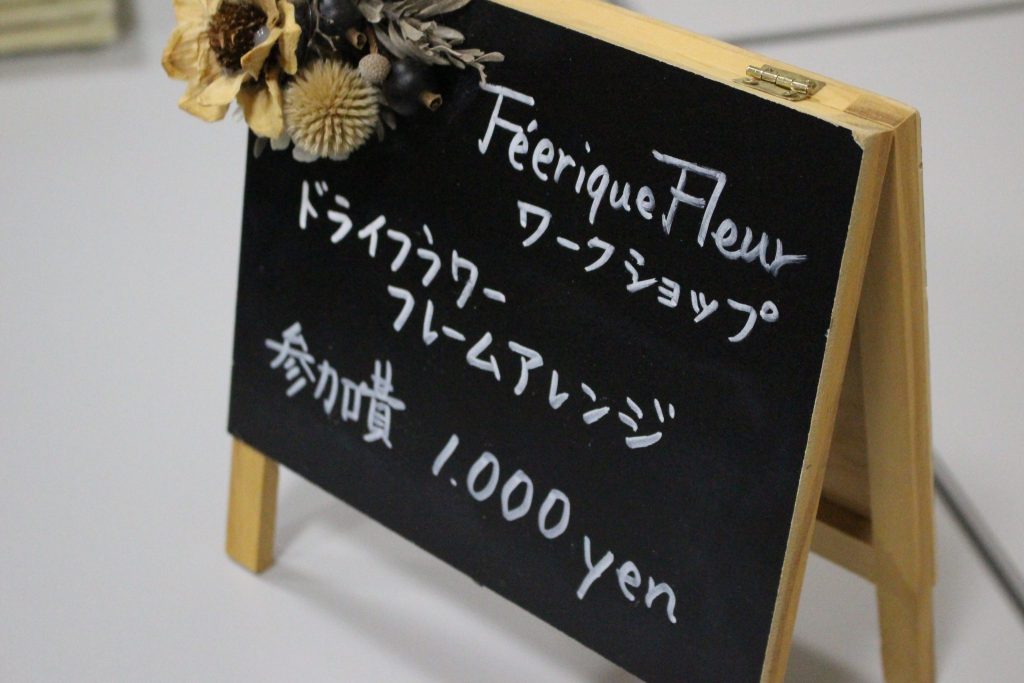 Féerique Fleur
ワークショップ
ドライフラワー
フレームアレンジ
参加費 1.000 yen